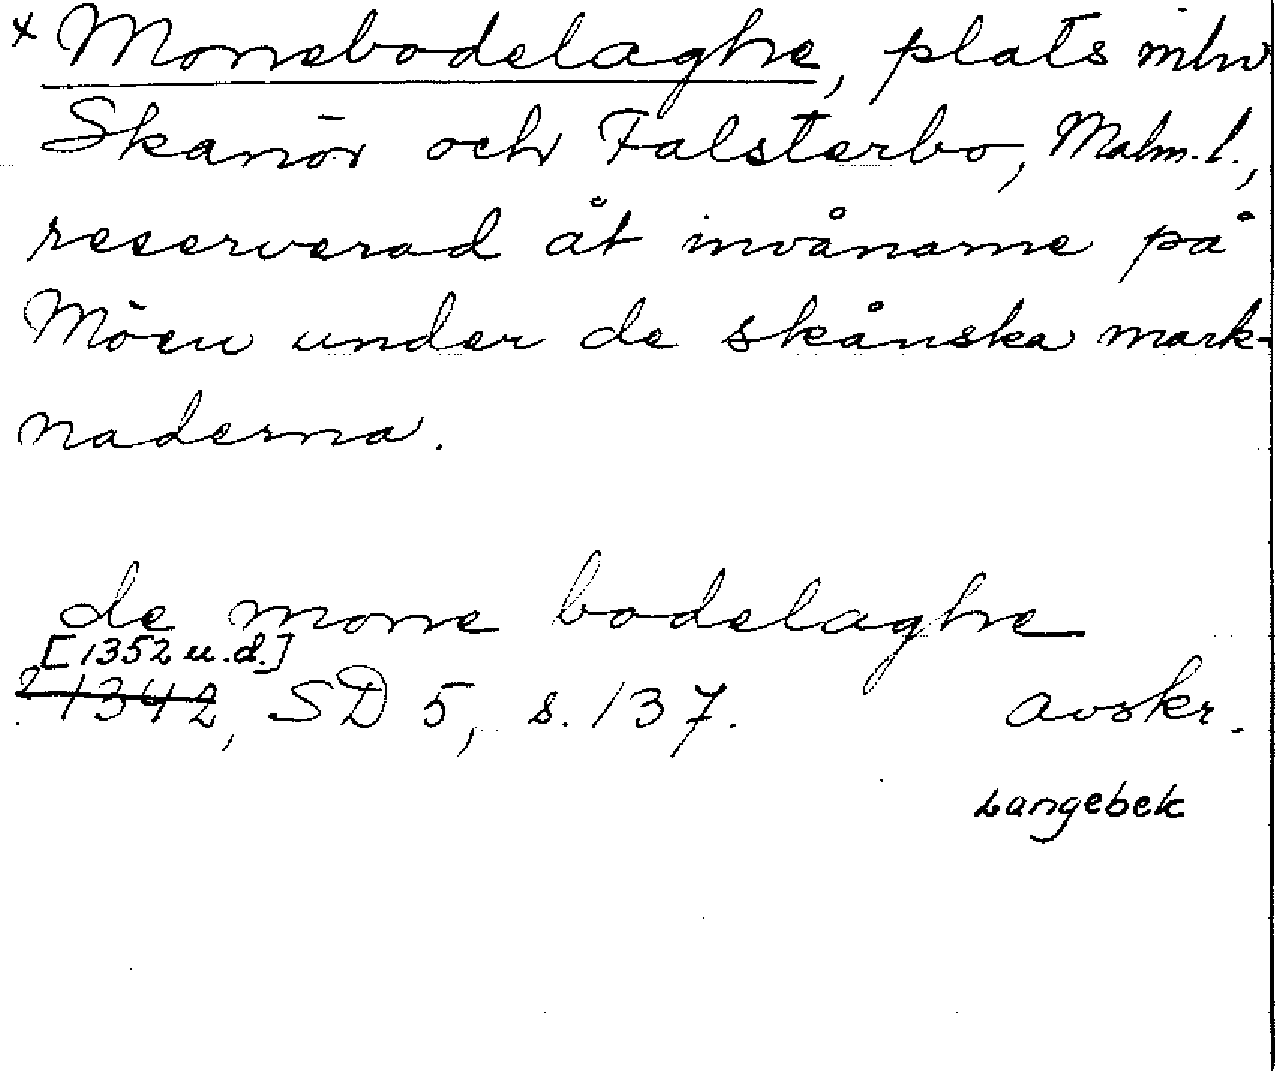 x Monebodelaghe, plats mln
Skanör och Falsterbo, Malm.l.,
reserverad åt invånarne på
Möen under de skånska mark-
naderna.
de mone bodelaghe
[1352 u.d.]
2 1342, SD 5, s. 137. avskr.
Langebek